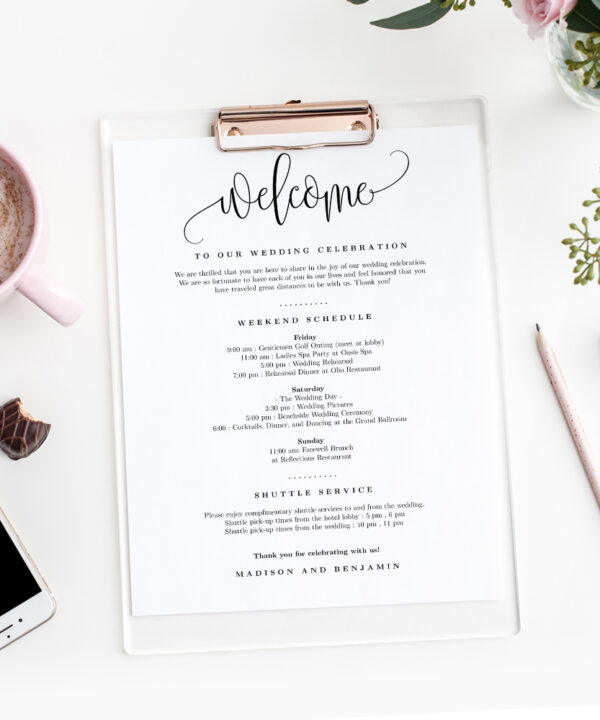 welcome
TO OUR WEDDING CELEBRATION
We are thrilled that you are here to share in the joy of our wedding celebration.
We are so fortunate to have each of you in our lives and feel honored that you
have traveled great distances to be with us. Thank you!
WEEKEND SCHEDULE
Friday
9:00 am : Gentlemen Golf Outing (meet at lobby)
11:00 am : Ladies Spa Party at Oasis Spa
5:00 pm : Wedding Rehearsal
7:00 pm : Rehearsal Dinner at Olio Restaurant
Saturday
- The Wedding Day -
3:30 pm : Wedding Pictures
5:00 pm : Beachside Wedding Ceremony
6:00 : Cocktails, Dinner, and Dancing at the Grand Ballroom
Sunday
11:00 am: Farewell Brunch
at Reflections Restaurant
SHUTTLE SERVICE
Please enjoy complimentary shuttle services to and from the wedding.
Shuttle pick-up times from the hotel lobby : 5 pm , 6 pm
Shuttle pick-up times from the wedding : 10 pm , 11 pm
Thank you for celebrating with us!
MADISON AND BENJAMIN